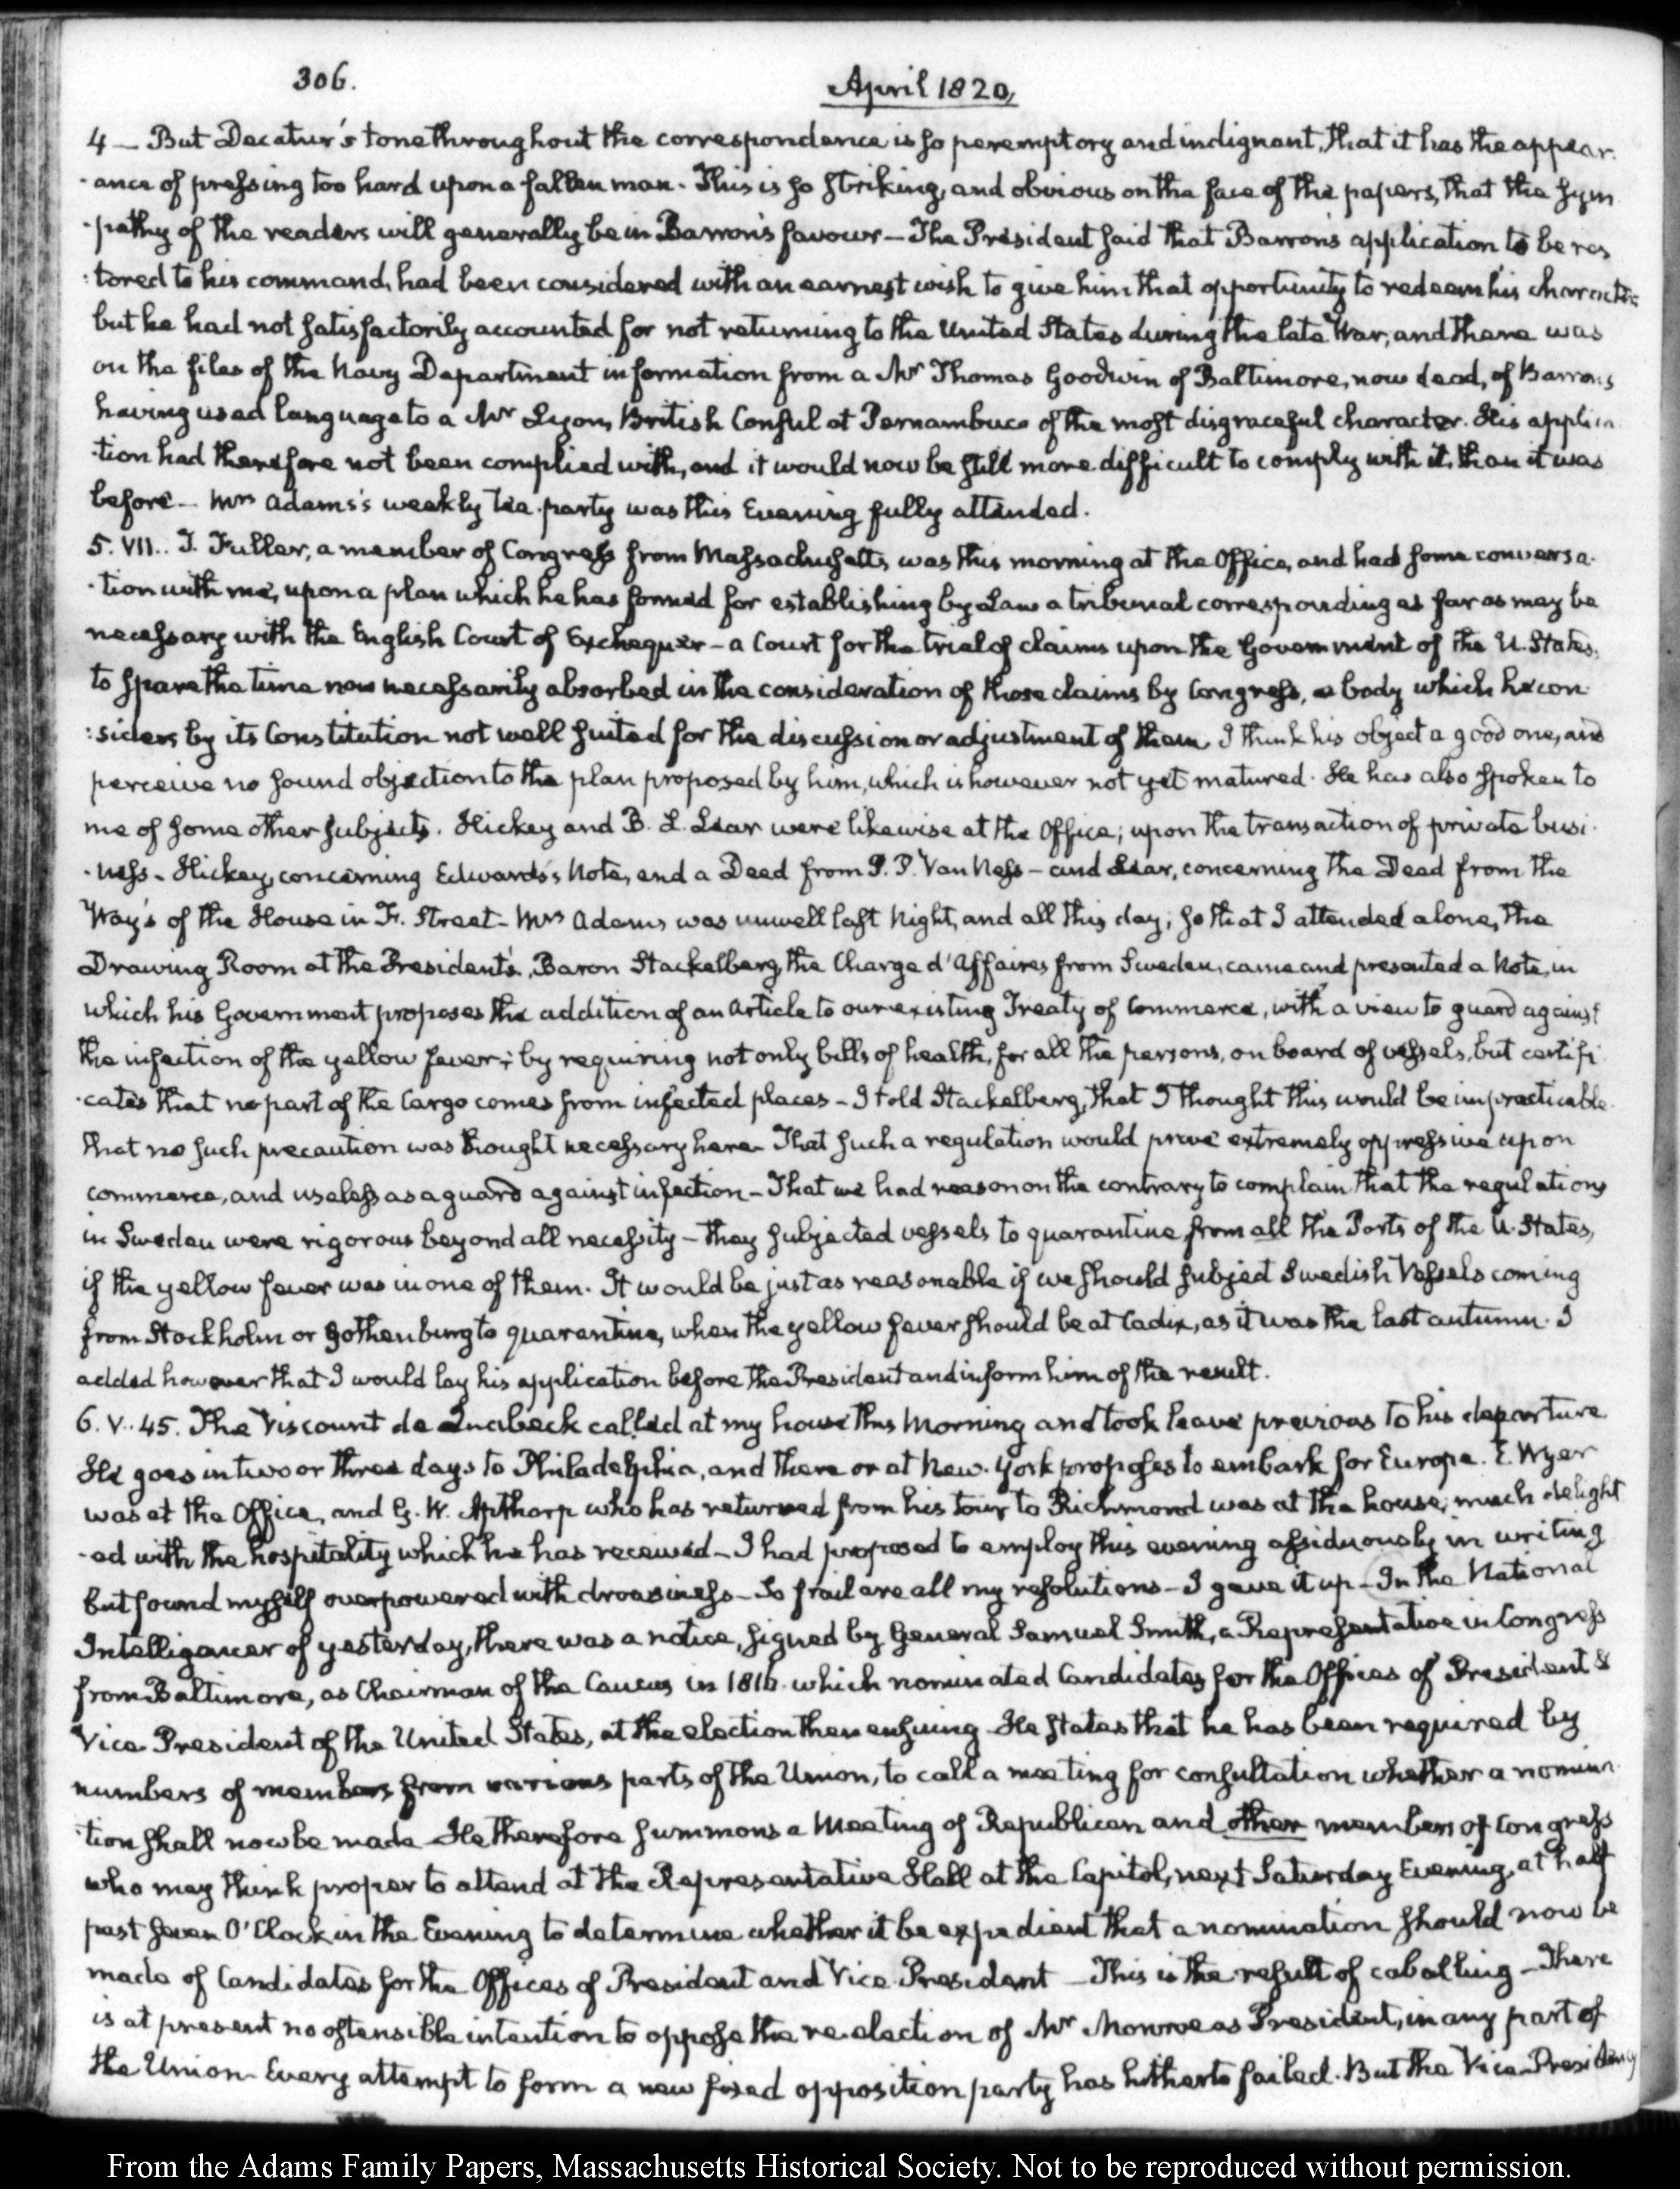 306.
April 1820,
4 — But Decatur's tone throughout the correspondence is so peremptory and indignant, that it has the appear.
-ance of pressing too hard upon a fallen man. This is so striking, and obvious on the face of the papers, that the sym
-pathy of the readers will generally be in Barron's favour — The President said that Barron's application to be res
:tored to his command, had been considered with an earnest wish to give him that opportunity to redeem his character
but he had not satisfactorily accounted for not returning to the United States during the late War, and there was
on the files of the Navy Department information from a Mr Thomas Goodwin of Baltimore, now dead, of Barrons
having used language to a Mr Lyon, British Consul at Pernambuco of the most disgraceful character. His applica
-tion had therefore not been complied with, and it would now be still more difficult to comply with it, than it was
before — Mrs Adams's weekly tea-party was this Evening fully attended.
5. VII.. T. Fuller, a member of Congress from Massachusetts, was this morning at the Office, and had some conversa-
-tion with me, upon a plan which he has formed for establishing by Law a tribunal corresponding as far as may be
necessary with the English Court of Exchequer — a Court for the trial of claims upon the Government of the U. States.
to spare the time now necessarily absorbed in the consideration of those claims by Congress, a body which he con-
:siders by its Constitution not well suited for the discussion or adjustment of them. I think his object a good one, and
perceive no sound objection to the plan proposed by him, which is however not yet matured. He has also spoken to
me of some other subjects. Hickey and B. L. Lear were likewise at the Office; upon the transaction of private busi-
-ness — Hickey, concerning Edwards's Note, and a Deed from J. P. Van Ness — and Lear, concerning the Deed from the
Way's of the House in F. Street — Mrs Adams was unwell last Night, and all this day; so that I attended alone, the
Drawing Room at the President's. Baron Stackelberg, the Chargé d'Affaires from Sweden, came and presented a Note, in
which his Government proposes the addition of an Article to our existing Treaty of Commerce, with a view to guard against
the infection of the yellow fever; by requiring not only bills of health, for all the persons, on board of vessels, but certifi
-cates that no part of the Cargo comes from infected places — I told Stackelberg, that I thought this would be impracticable.
that no such precaution was thought necessary here — That such a regulation would prove extremely oppressive upon
commerce, and useless as a guard against infection — That we had reason on the contrary to complain that the regulations
in Sweden were rigorous beyond all necessity — they subjected vessels to quarantine from all the Ports of the U. States,
if the yellow fever was in one of them. It would be just as reasonable if we should subject Swedish Vessels coming
from Stockholm or Gothenburg to quarantine, when the yellow fever should be at Cadix, as it was the last autumn. I
added however that I would lay his application before the President and inform him of the result.
6. V.. 45. The Viscount de Quabeck called at my house this Morning and took leave previous to his departure.
He goes in two or three days to Philadelphia, and there or at New-York proposes to embark for Europe. E. Wyer
was at the Office, and G. W. Apthorp who has returned from his tour to Richmond was at the house; much delight
-ed with the hospitality which he has received — I had proposed to employ this evening assiduously in writing
but found myself overpowered with drowsiness — So frail are all my resolutions — I gave it up — In the National
Intelligencer of yesterday, there was a notice, signed by General Samuel Smith, a Representative in Congress
from Baltimore, as Chairman of the Caucus in 1816. which nominated Candidates for the Offices of President &
Vice President of the United States, at the election then ensuing — He states that he has been required by
numbers of members from various parts of the Union, to call a meeting for consultation whether a nomina
-tion shall now be made — He therefore summons a Meeting of Republican and other members of Congress
who may think proper to attend at the Representative Hall at the Capitol, next Saturday Evening, at half
past seven O'Clock in the Evening to determine whether it be expedient that a nomination should now be
made of Candidates for the Offices of President and Vice President — This is the result of caballing — There
is at present no ostensible intention to oppose the re-election of Mr Monroe as President, in any part of
the Union — Every attempt to form a new fixed opposition party has hitherto failed. But the Vice-Presidency
From the Adams Family Papers, Massachusetts Historical Society. Not to be reproduced without permission.